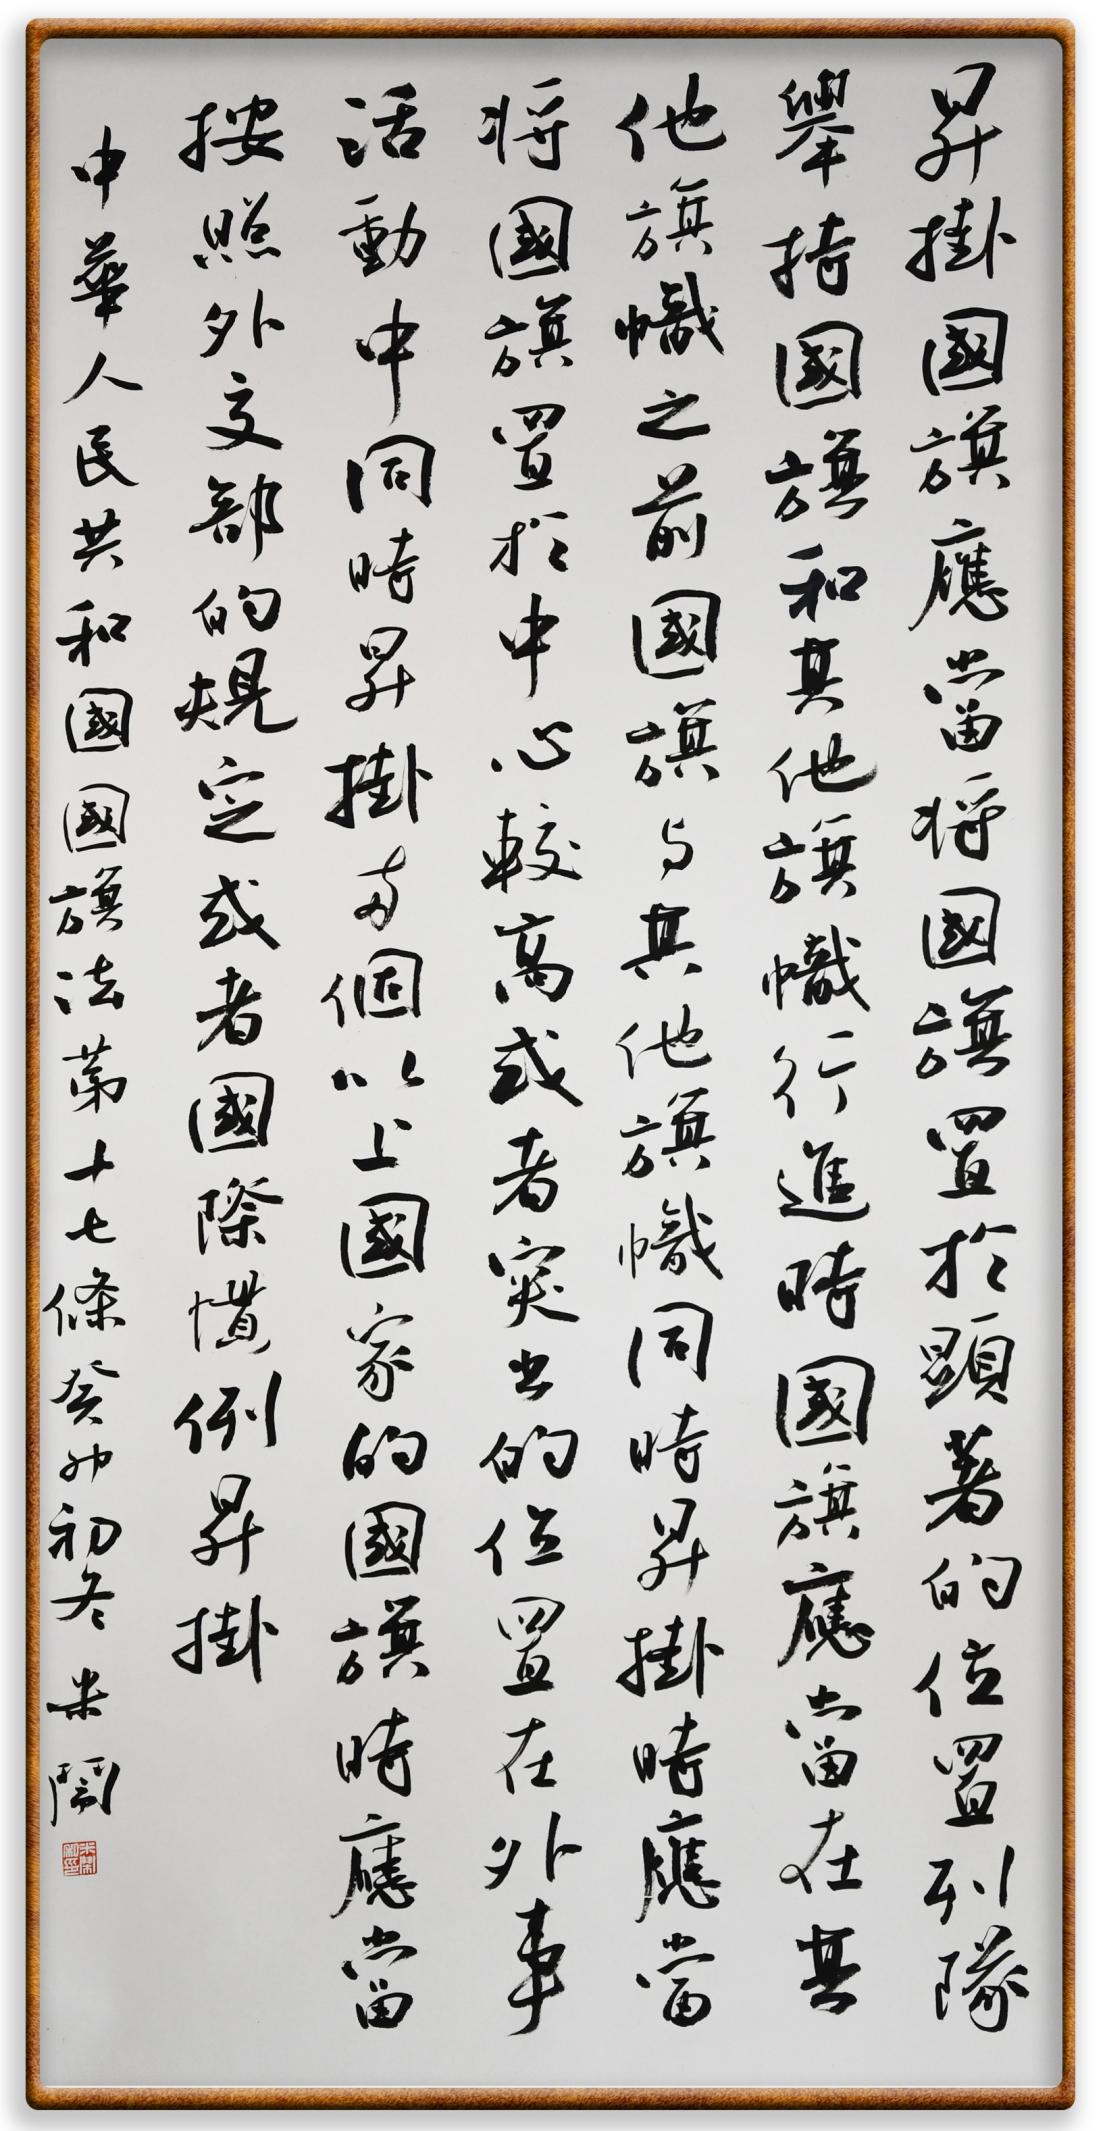 昇掛國旗應當將國旗置於顯著的位置列隊
舉持國旗和其他旗幟行進時國旗應當在其
他旗幟之前國旗与其他旗幟同時昇掛時應當
將國旗置於中心較高或者突出的位置在外事
活動中同時昇掛兩個以上國家的國旗時應當
按照外交部的規定或者國際慣例昇掛
中華人民共和國國旗法第十七條癸卯初冬米鬧